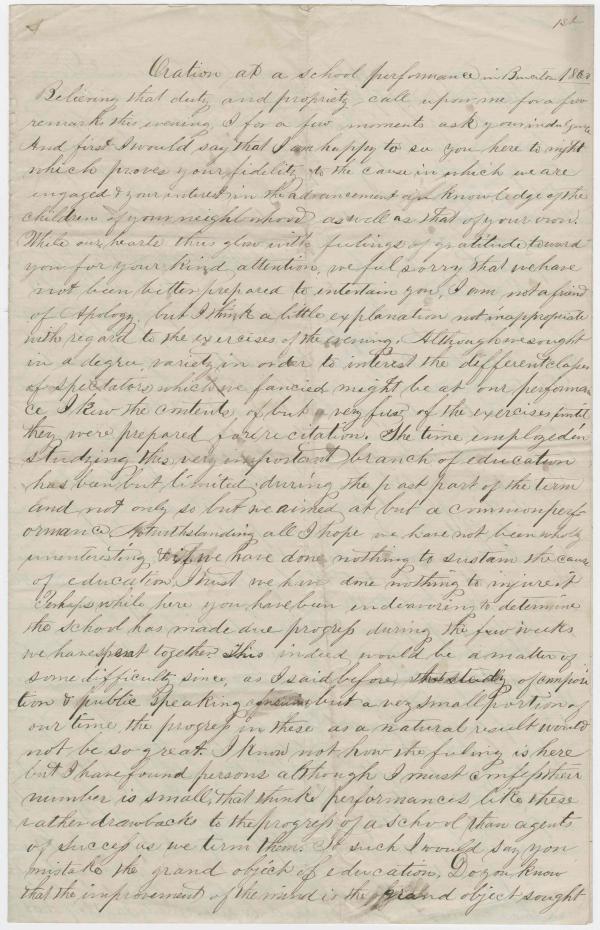 1st
Oration at a school performance in 1860
Believing that duty and propriety call upon me for a few
remarks this evening, I for a few moments ask your indulgence
And first I would say that I am happy to see you here to night
which proves your fidelity to the cause in which we are
engaged & your interest in the advancement in knowledge of the
children of your neighborhood as well as that of your own.
While our hearts thus glow with feelings of gratitude toward
you for your kind attention, we feel sorry that we have
not been better prepared to entertain you, I am not a friend
of Apology, but I think a little explanation not inappropriate
with regard to the exercises of the evening. Although we sought
in a degree, variety in order to interest the different classes
of spectators which we fancied might be at our performan-
ce I knew the contents of but a very few of the exercises until
they were prepared for recitation. The time employed in
studying this very important branch of education
has been but limited during the past part of the term
and not only so but we aimed at but a common perf-
ormance Notwithstanding all I hope we have not been wholly
uninteresting & if we have done nothing to sustain the cause
of education I trust we have done nothing to injure it
Perhaps while here you have been endeavoring to determine
the school has made due progress during the few weeks
we have spent together. This indeed would be a matter of
some difficulty since, as I said before, the study of composi
tion & public speaking but a very small portion of
our time, the progress in these as a natural result would
not be so great. I know not how the feeling is here
but I have found persons although I must confess their
number is small, that think performances like these
rather drawbacks to the progress of a school than agents
of success as we term them. To such I would say you
mistake the grand object of education. Do you know
that the improvement of the mind is the grand object sought